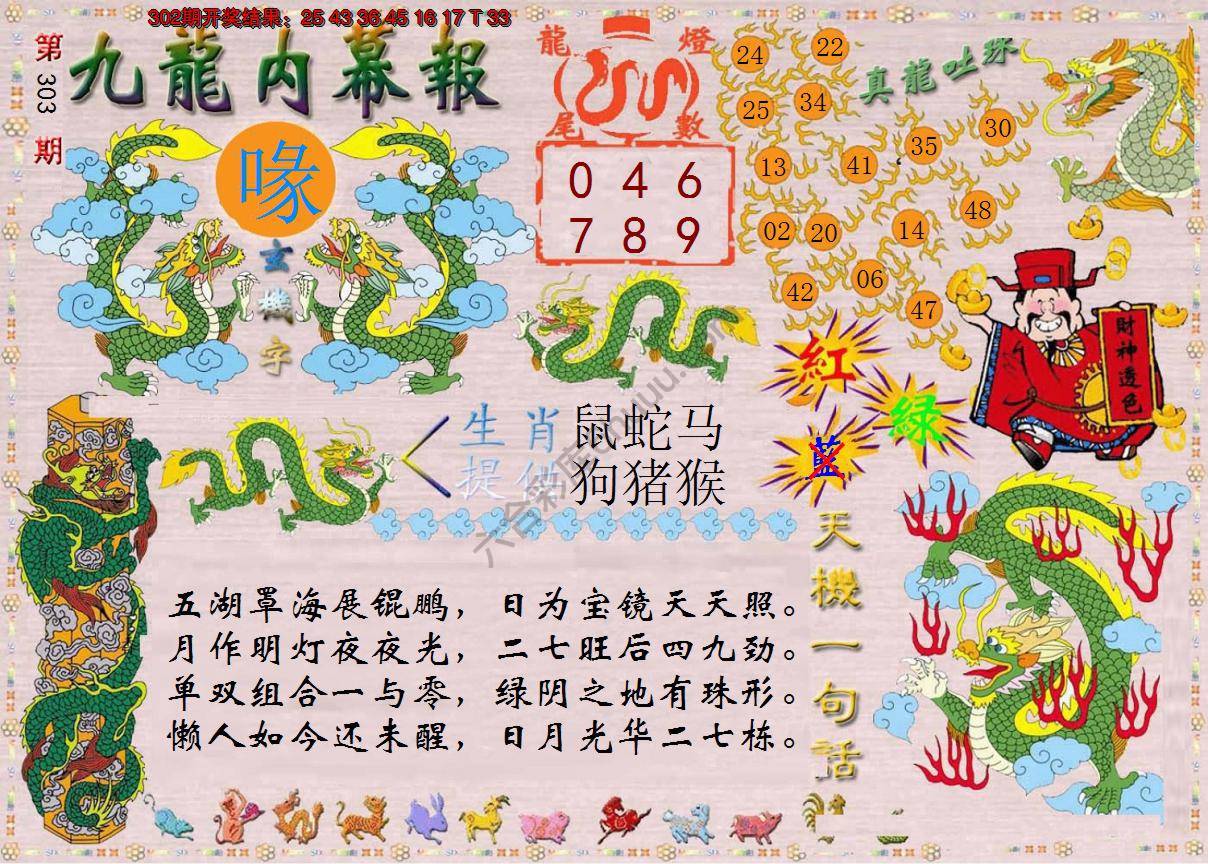 302期开奖结果：25 43 36 45 16 17 T 33
第303期
九龍内幕報
喙
玄機字
龍燈
尾數
0 4 6
7 8 9
真龍吐珠
24 22
25 34
13 41 35 30
02 20 14 48
42 06 47
財神透色
紅
綠
藍
生肖 鼠蛇马
提供 狗猪猴
五湖罩海展锟鹏，日为宝镜天天照。
月作明灯夜夜光，二七旺后四九劲。
单双组合一与零，绿阴之地有珠形。
懒人如今还未醒，日月光华二七栋。
天機一句話